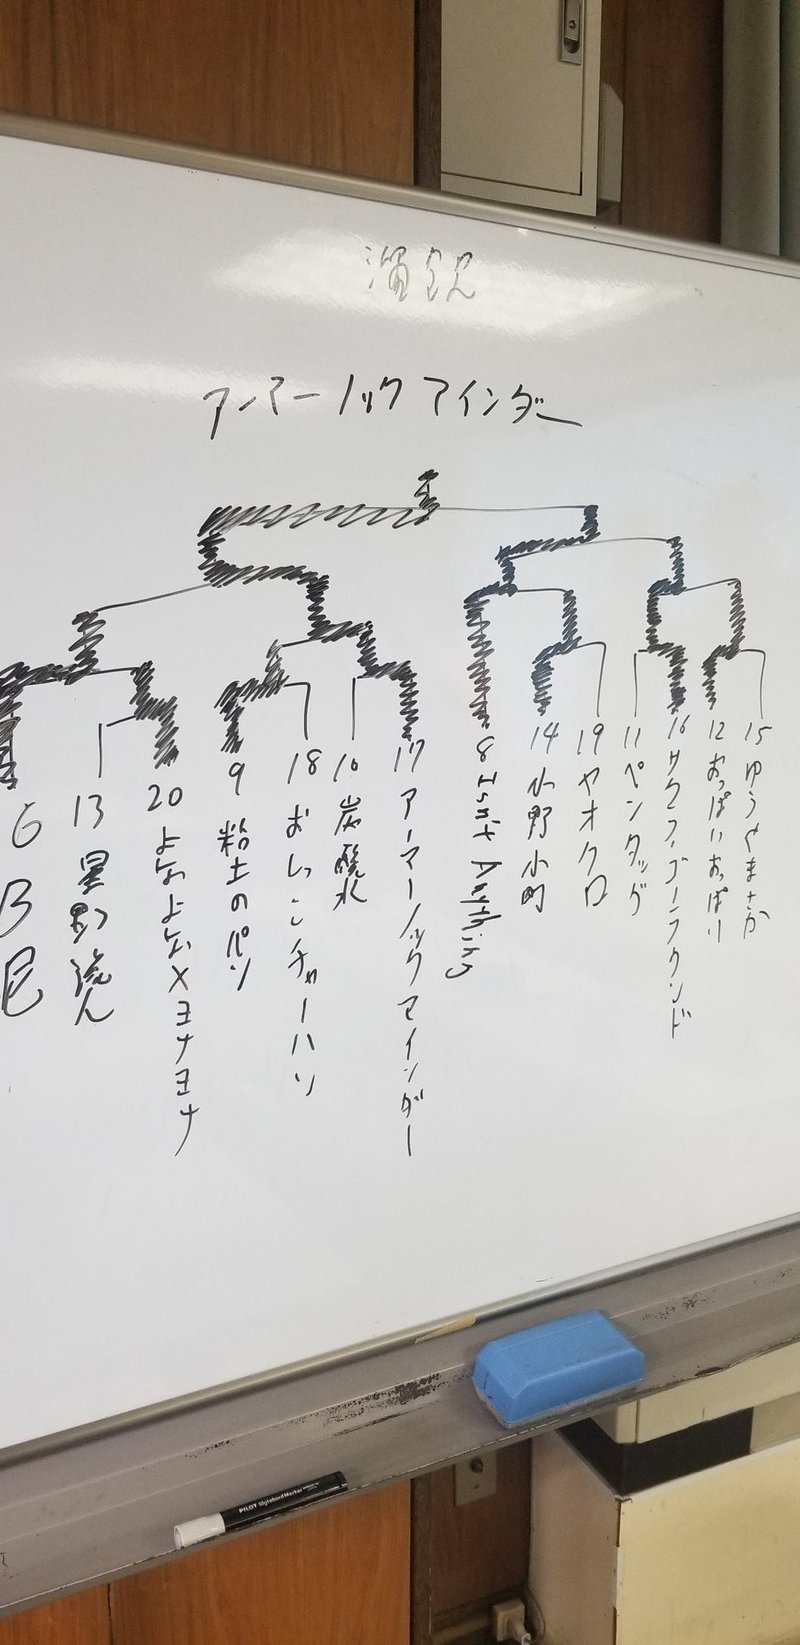 アーマーノックマインダー
6 B尼
13 星影読ん
20 よなよな×ヨナヨナ
9 粘土のパン
18 おしっこチャーハン
10 炭酸水
17 アーマーノックマインダー
8 Isn't Anything
14 小野小町
19 ヤオクロ
11 ペンタッグ
16 サクラ・ゴーラウンド
12 おっぱいおっぱい
15 ゆうやまさか
PILOT WhiteboardMarker